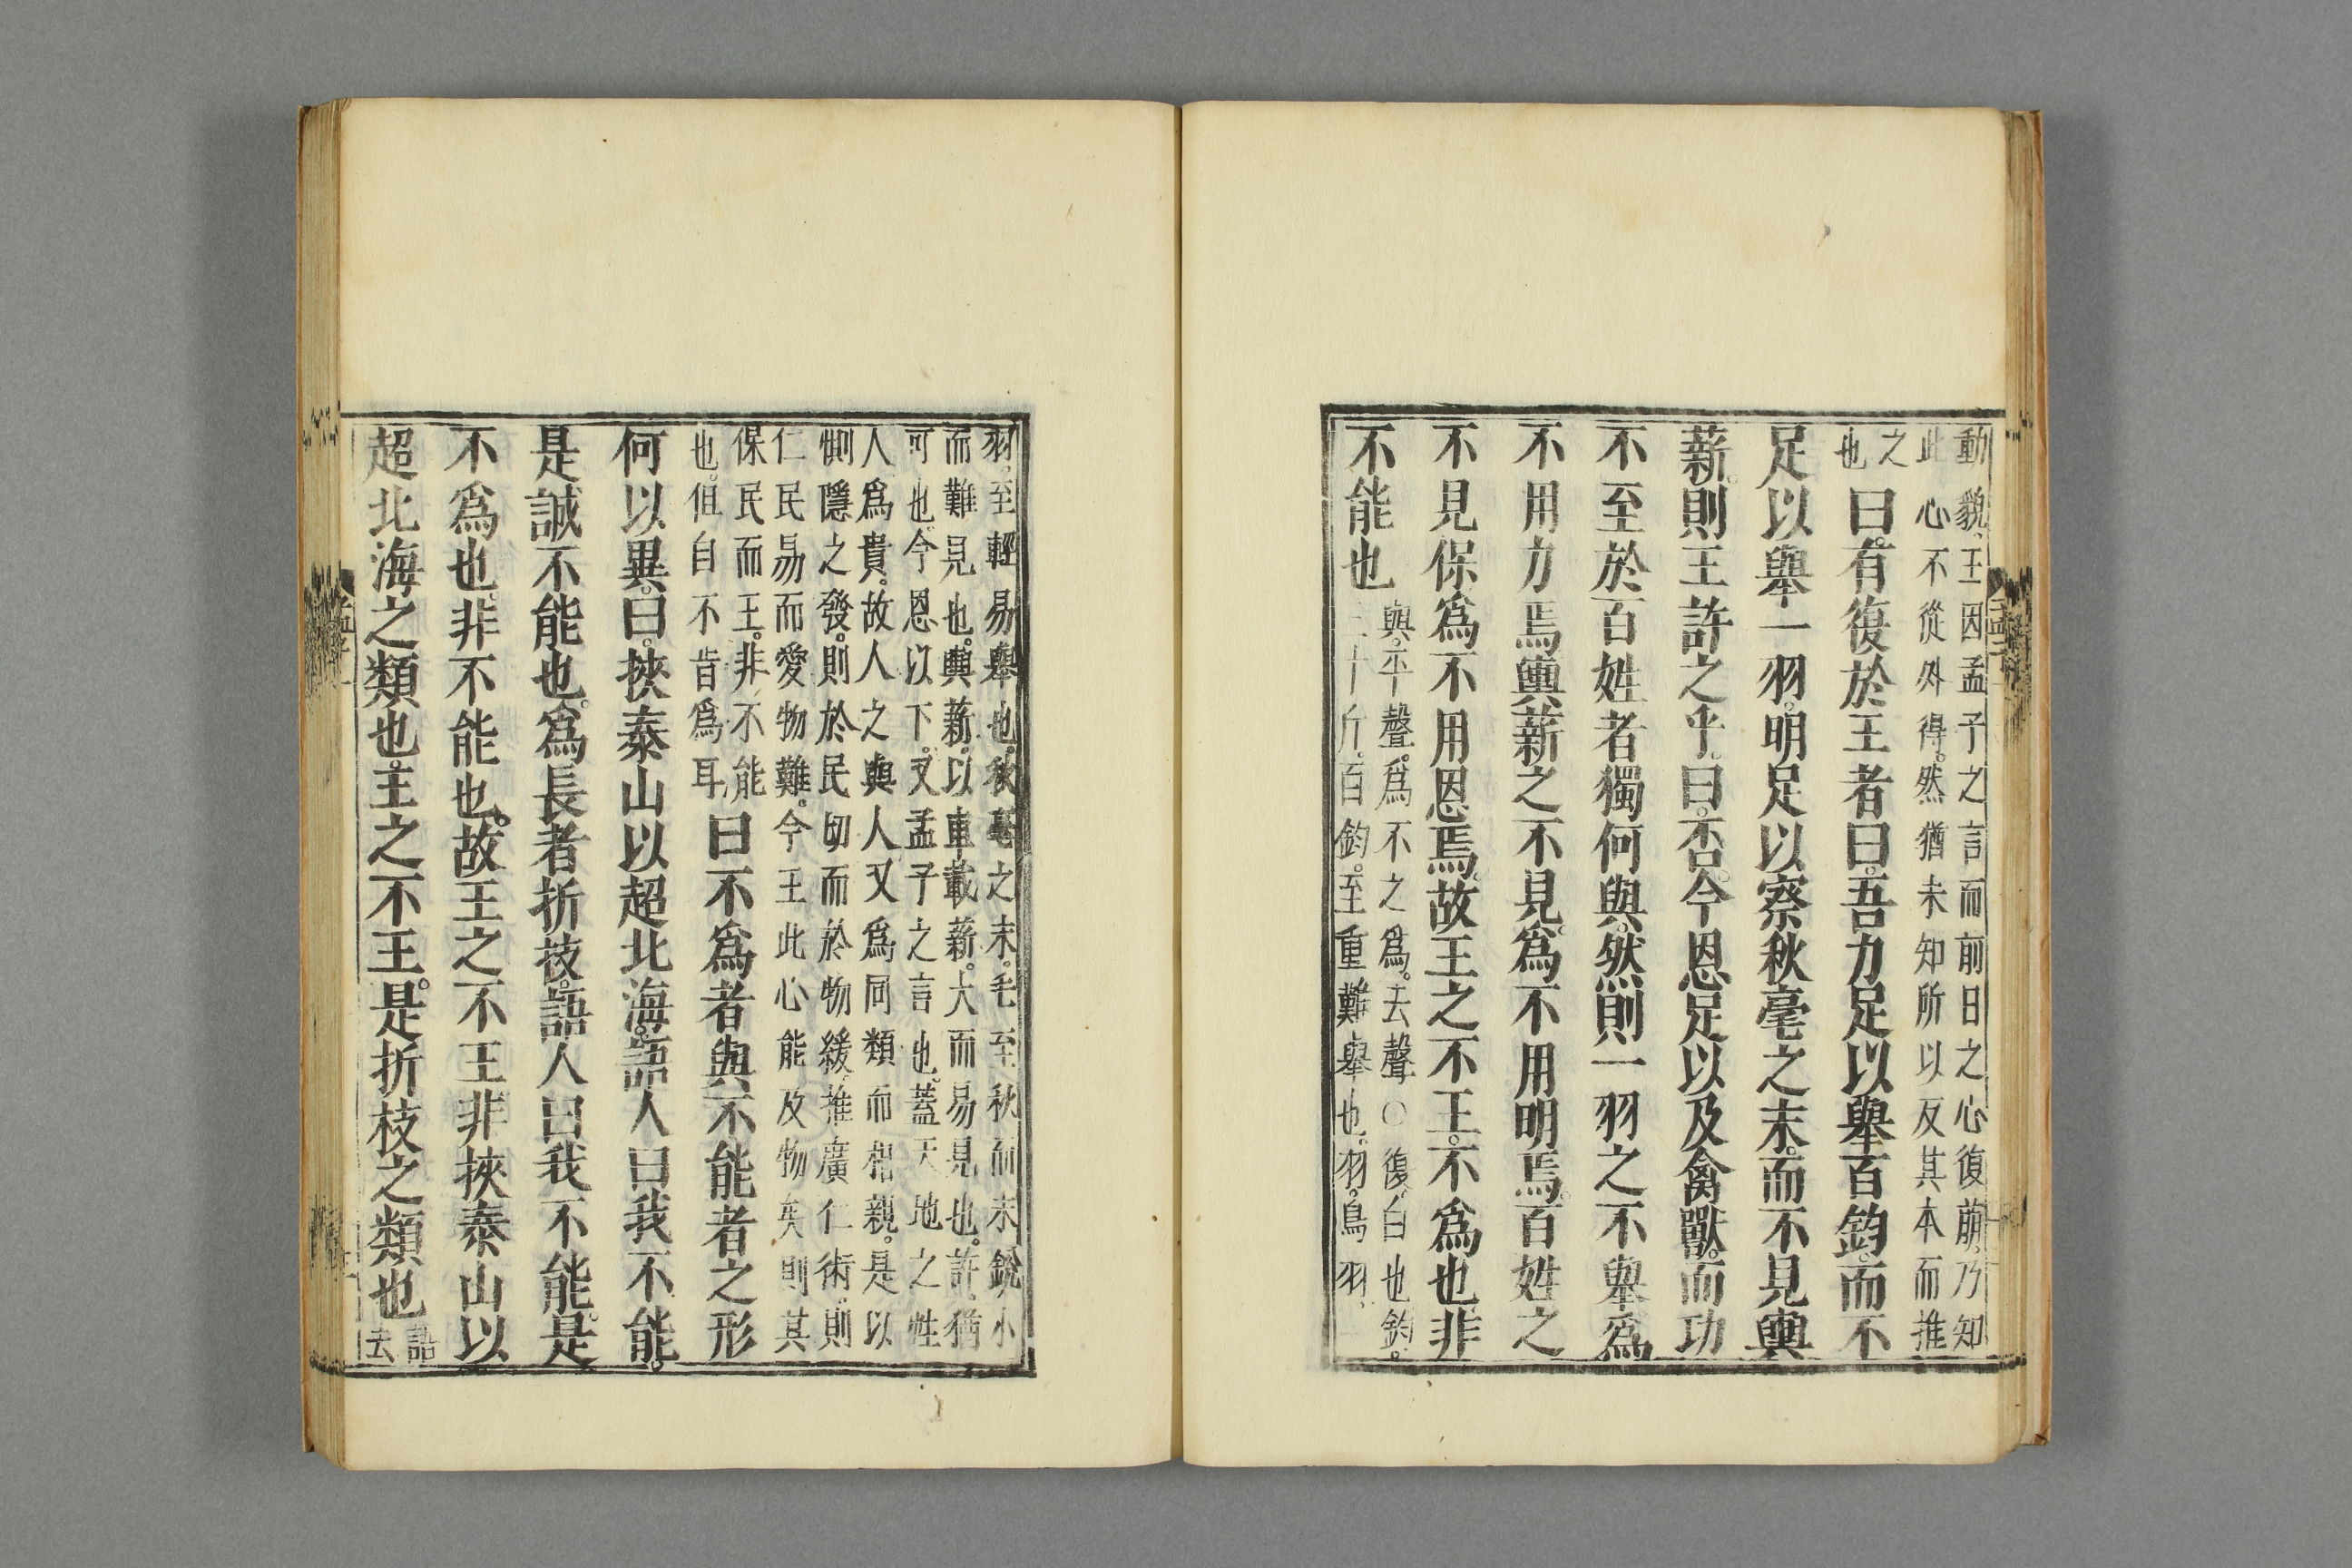 動貌、王因孟子之言而前日之心復萠、乃知
此心不從外得。然猶未知所以反其本而推
之
也
曰。有復於王者曰。吾力足以舉百鈞。而不
足以舉一羽。明足以察秋毫之末。而不見輿
薪。則王許之乎。曰。否。今恩足以及禽獸。而功
不至於百姓者獨何與。然則一羽之不舉。爲
不用力焉。輿薪之不見。爲不用明焉。百姓之
不見保。爲不用恩焉。故王之不王。不爲也。非
不能也
與。平聲。爲不之爲。去聲○復。白也。鈞。
三十斤。百鈞。至重難舉也。羽。鳥羽、
羽、至輕易舉也。秋毫之末。毛至秋而末銳。小
而難見也。輿薪。以車載薪。大而易見也。許。猶
可也。今恩以下。又孟子之言也。蓋天地之性
人爲貴。故人之與人又爲同類而相親。是以
惻隱之發。則於民切而於物緩。推廣仁術。則
仁民易而愛物難。今王此心能及物矣則其
保民而王。非不能
也。但自不肯爲耳
曰不爲者與不能者之形
何以異。曰。挾泰山以超北海。語人曰我不能。
是誠不能也。爲長者折枝。語人曰我不能。是
不爲也。非不能也。故王之不王非挾泰山以
超北海之類也。王之不王。是折枝之類也
語
去